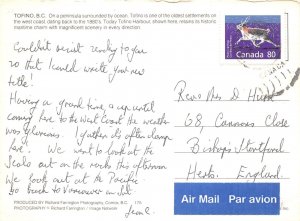 TOFINO, B.C. On a peninsula surrounded by ocean. Tofino is one of the oldest settlements on
the west coast, dating back to the 1880's. Today Tofino Harbour, shown here, retains its historic
maritime charm with magnificent scenery in every direction.
Couldn't resist writing to you
so that I could write your new
title!
Having a grand time & up until
coming here to the West Coast the weather
was glorious. I gather it's often damp
here. We want to look at the
Seals out on the rocks this afternoon
We look out at the Pacific
so back to Vancouver
Jean
PRODUCED BY Richard Farrington Photography, Comox B.C. 170
PHOTOGRAPHY Richard Farrington / Image Network
Canada 80
CANADA
Rev & Mrs D Hurst
68, Cannons Close
Bishops Stortford
Herts. England.
Air Mail Par avion